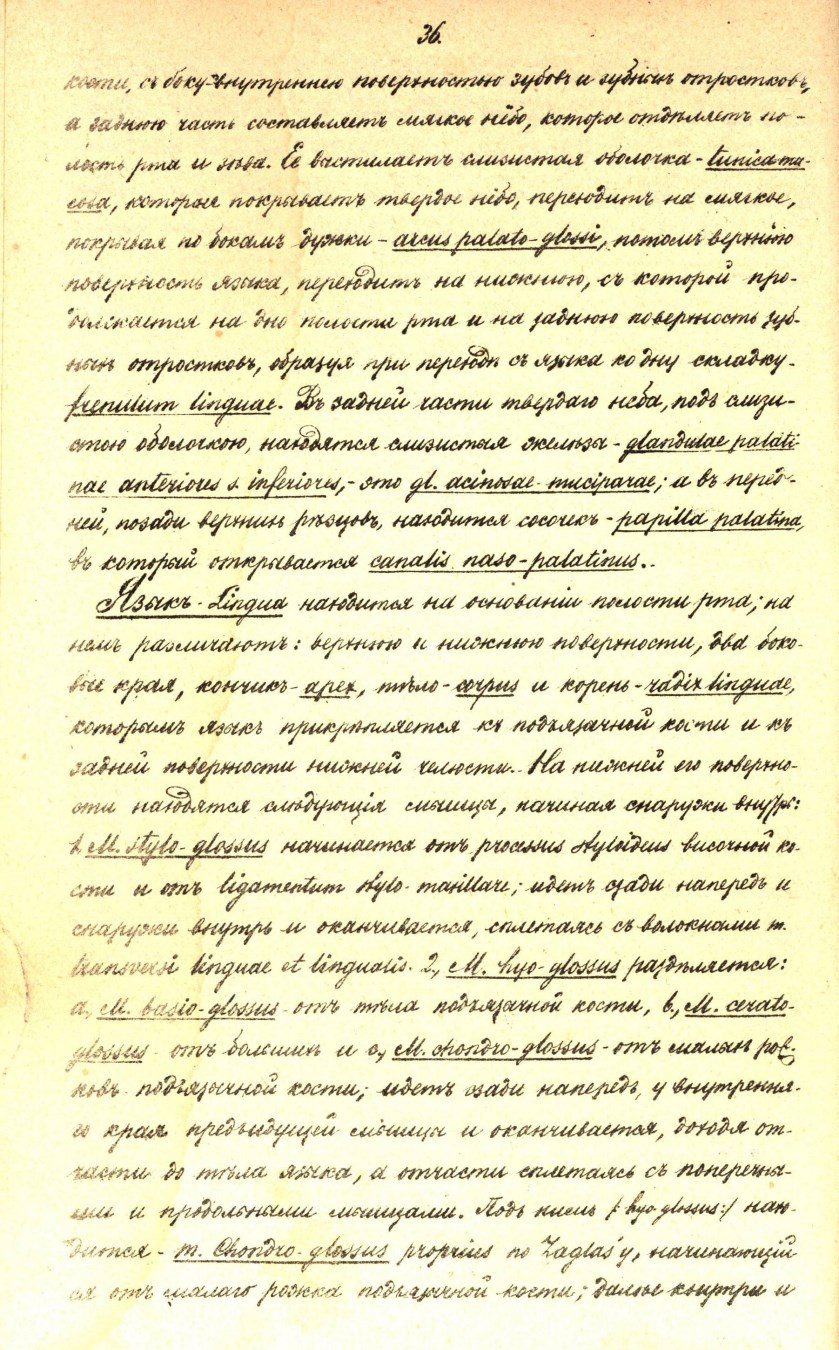 36.
кости, съ боку-внутреннею поверхностью зубовъ и зубныхъ отростковъ,
а заднюю часть составляетъ мягкое нёбо, которое отдѣляетъ по-
лость рта и зѣва. Ее выстилаетъ слизистая оболочка - tunica mu-
cosa, которая покрываетъ твердое нёбо, переходитъ на мягкое,
покрывая по бокамъ дужки - arcus palato-glossi, потомъ верхнюю
поверхность языка, переходитъ на нижнюю, съ которой про-
должается на дно полости рта и на заднюю поверхность зуб-
ныхъ отростковъ, образуя при переходѣ съ языка ко дну складку-
frenulum linguae. Въ задней части твердаго неба, подъ слизи-
стою оболочкою, находятся слизистыя железы - glandulae palati-
nae anteriores s. inferiores,- это gl. acinosae-muciparae; а въ перед-
ней, позади верхнихъ рѣзцовъ, находится сосочекъ - papilla palatina,
въ который открывается canalis naso-palatinus..
Языкъ-Lingua находится на основаніи полости рта; на
немъ различаютъ: верхнюю и нижнюю поверхности, два боко-
вые края, кончикъ-apex, тѣло-corpus и корень-radix linguae,
которымъ языкъ прикрѣпляется къ подъязычной кости и къ
задней поверхности нижней челюсти. На нижней его поверхно-
сти находятся слѣдующія мышцы, начиная снаружи внутрь:
1, M. stylo-glossus начинается отъ processus styloideus височной ко-
сти и отъ ligamentum stylo-maxillare; идетъ сзади напередъ и
снаружи внутрь и оканчивается, сплетаясь съ волокнами m.
transversi linguae et lingualis. 2, M. hyo-glossus раздѣляется:
a, M. basio-glossus-отъ тѣла подъязычной кости, b, M. cerato-
glossus-отъ большихъ и c, M. chondro-glossus-отъ малыхъ рож-
ковъ подъязычной кости; идетъ сзади напередъ, у внутрення-
го края предъидущей мышцы и оканчивается, доходя от-
части до тѣла языка, а отчасти сплетаясь съ поперечны-
ми и продольными мышцами. Подъ нимъ /:hyo glossus:/ нахо-
дится - m. Chondro-glossus proprius по Zaglas'у, начинающій
ся отъ малаго рожка подъязычной кости; далѣе кнутри и